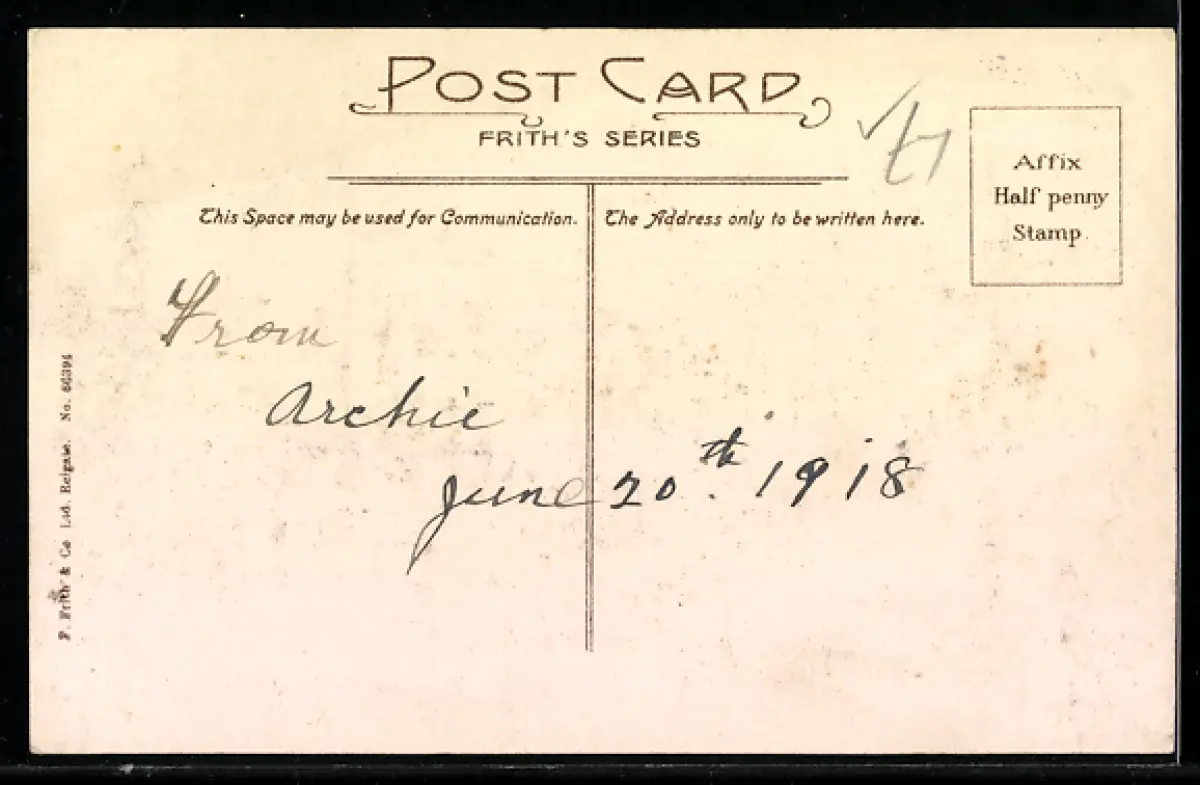 POST CARD
FRITH'S SERIES
This Space may be used for Communication.
The Address only to be written here.
Affix
Half penny
Stamp
From
Archie
June 20th. 1918
F. Frith & Co Ltd. Reigate. No. 66394